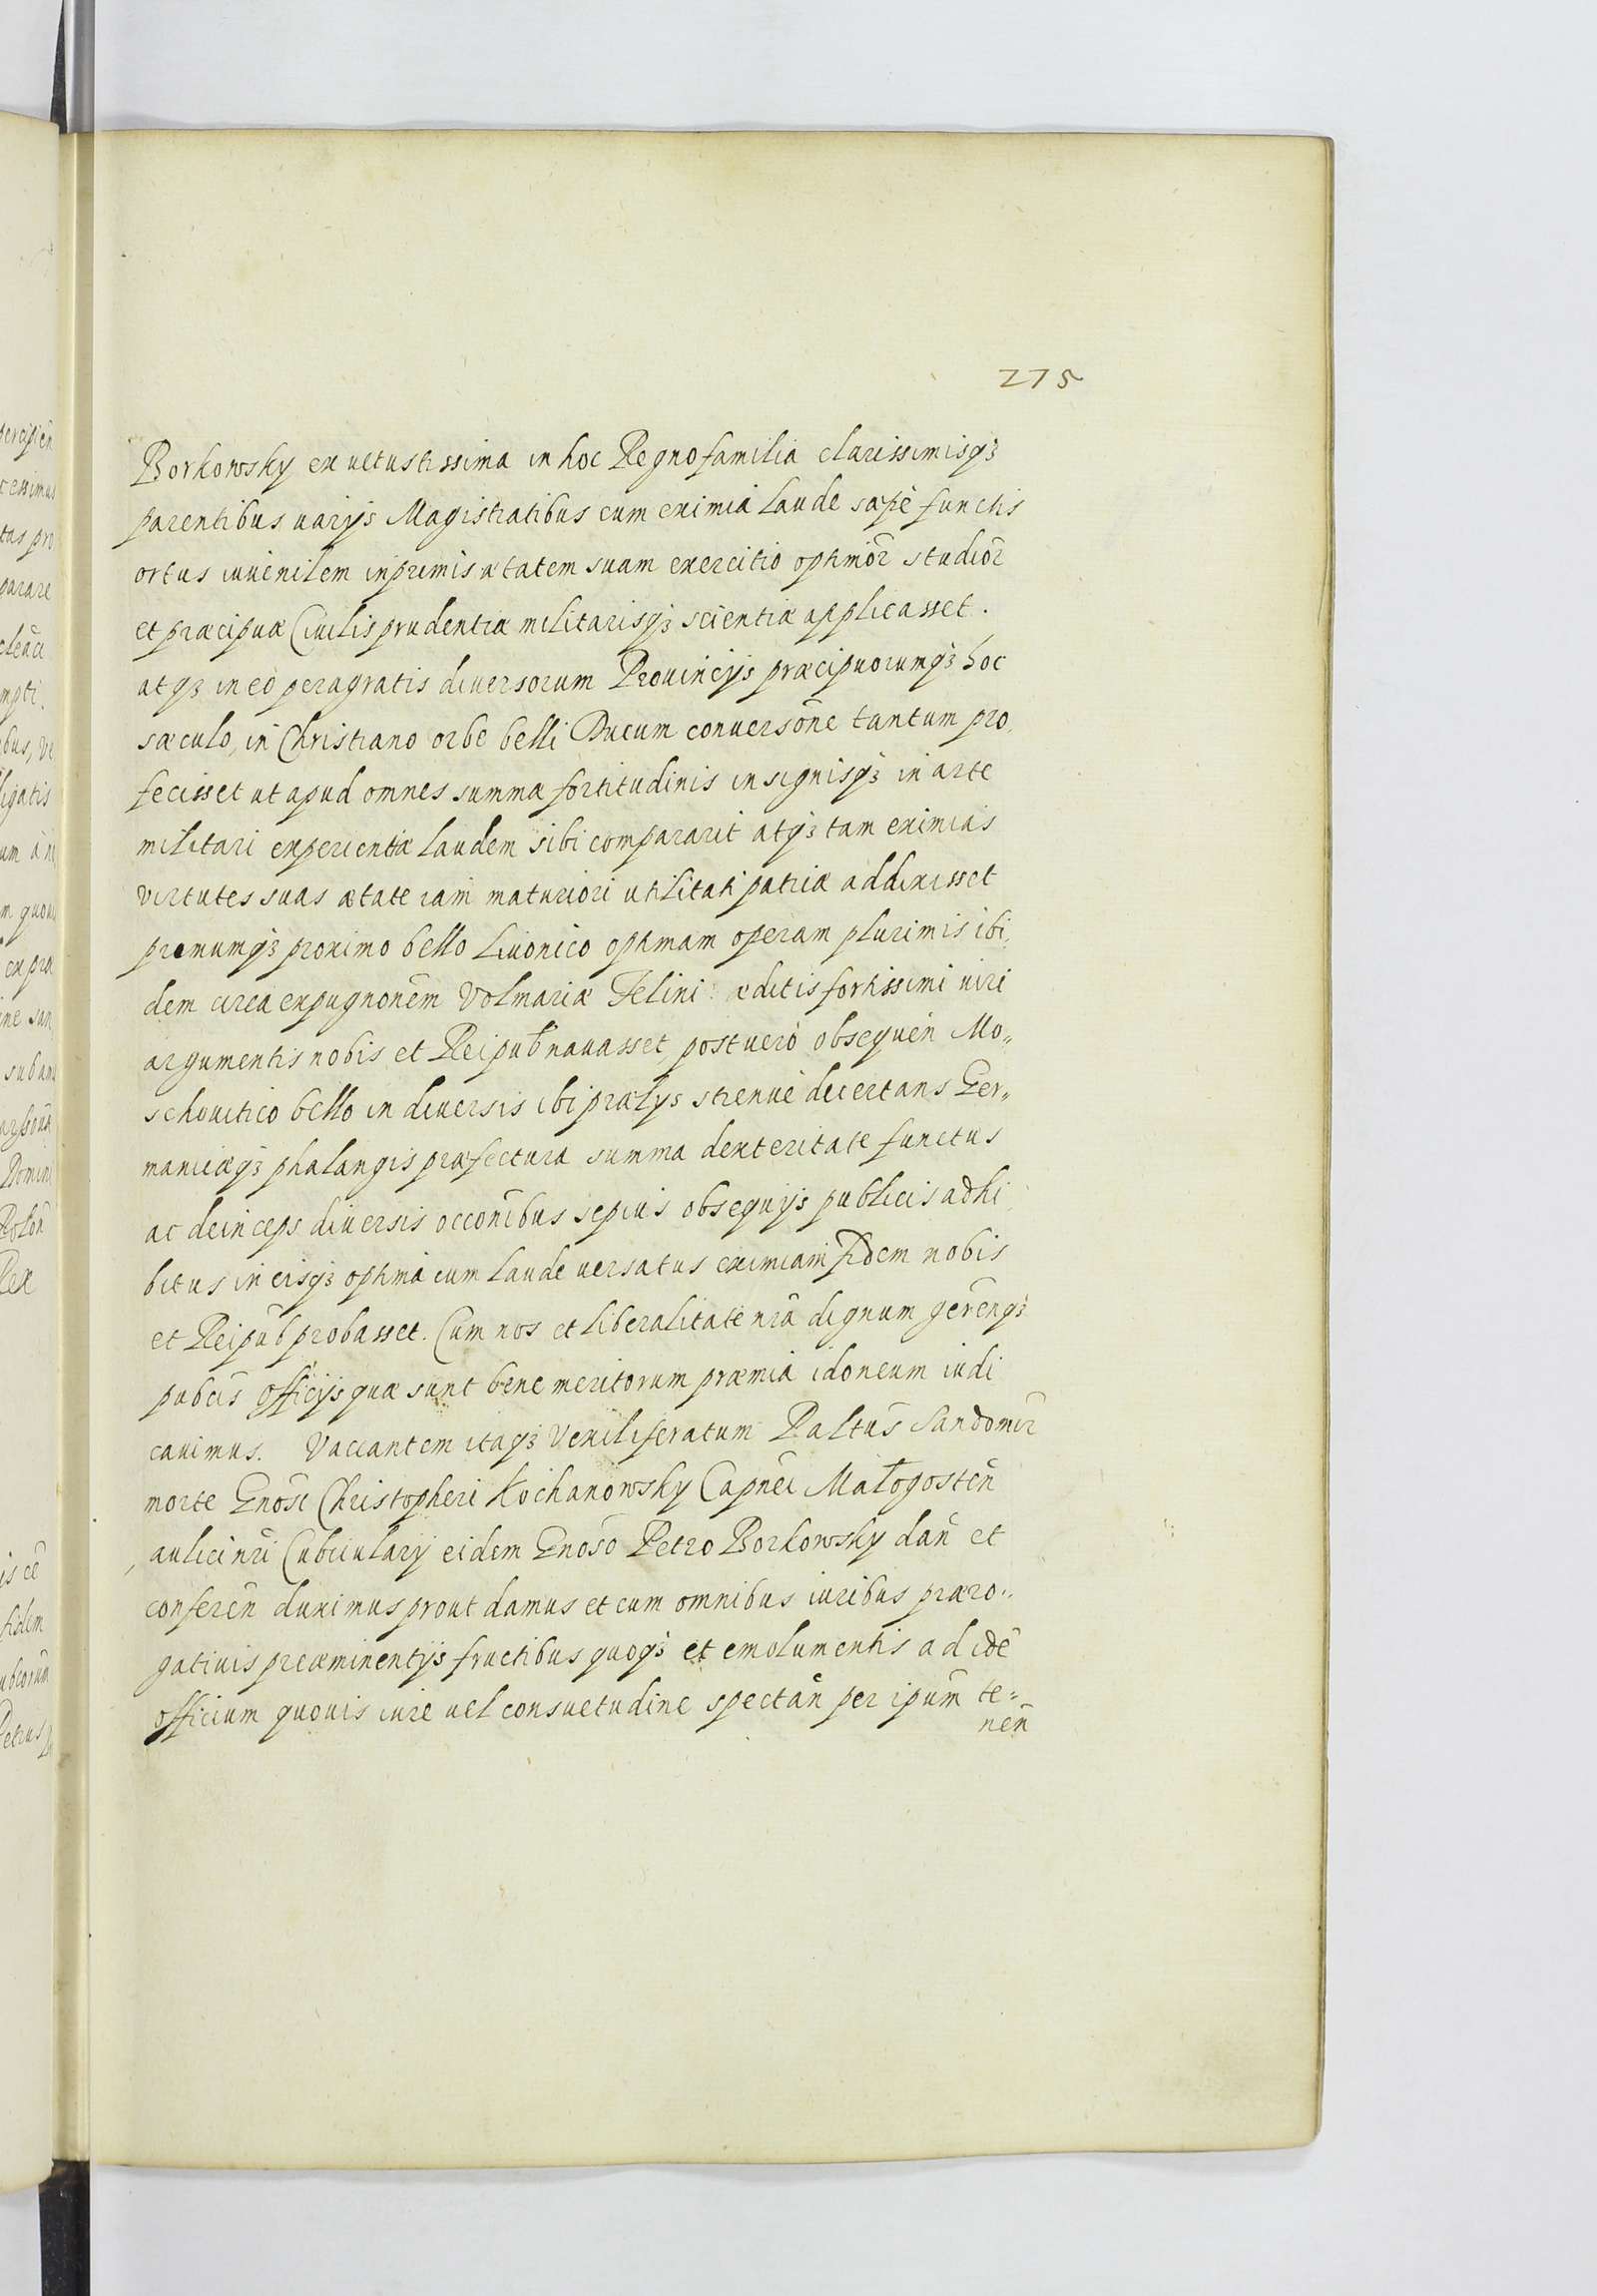 275
Borkowsky ex uetustissima in hoc Regno familia clarissimisqꝫ
parentibus uarijs Magistratibus cum eximia laude sæpè functis
ortus iuuenilem inprimis ætatem suam exercitio optimor̃ studior̃
et præcipuæ Ciuilis prudentiæ militarisqꝫ scientiæ applicasset.
atqꝫ in eo peragratis diuersorum Prouincijs præcipuorumqꝫ hoc
sæculo, in Christiano orbe belli Ducum conuersõne tantum pro,
fecisset ut apud omnes summæ fortitudinis insignisqꝫ in arte
militari experientiæ laudem sibi compararit atqꝫ tam eximias
virtutes suas ætate iam maturiori utilitati patriæ addixisset
primumqꝫ proximo bello Liuonico optimam operam plurimis ibi,
dem circa expugnonẽm Volmariæ Felini æditis fortissimi uiri
argumentis nobis et Reipub̃ nauasset, post uerò obsequeñ Mo„
schouitico bello in diuersis ibi prælys strenuè decertans Ger„
manicæqꝫ phalangis præfectura summa dexteritate functus
ac deinceps diuersis occonĩbus sepius obsequijs publicis adhi,
bitus in eisqꝫ optima cum laude uersatus eximiam fidem nobis
et Reipub̃ probasset. Cum nos et liberalitate nrã dignum gereñqꝫ
pubcĩs officijs quæ sunt bene meritorum præmia idoneum iudi
cauimus. Vaccantem itaqꝫ Vexiliferatum Paltũs Sandomir̃
morte Gnosĩ Christopheri Kochanowsky Capneĩ Małogosteñ
aulici nrĩ Cubicularij eidem Gnosõ Petro Borkowsky dañ et
confereñ duximus prout damus et cum omnibus iuribus præro„
gatiuis preæminentijs fructibus quoqꝫ et emolumentis ad idẽ
officium quouis iure uel consuetudine spectañ per ipum̃ te„
neñ